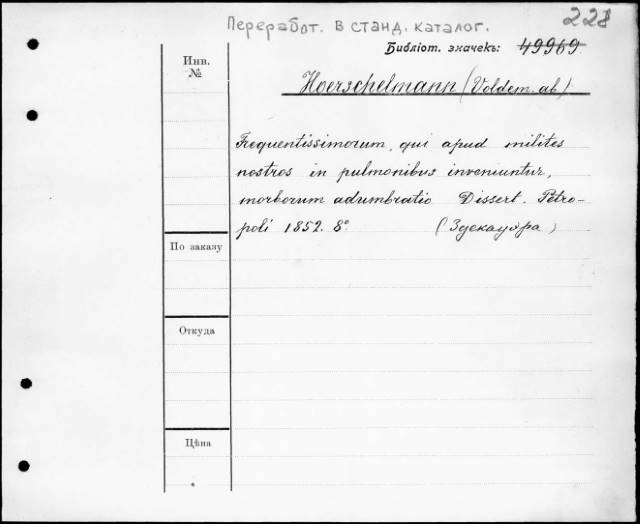 Переработ. в станд. каталог.
228
Библіот. значекъ: 49969.
Инв.
№
Hoerschelmann (Voldem. ab)
Frequentissimorum, qui apud milites
nostros in pulmonibus inveniuntur,
morborum adumbratio Dissert. Petro-
poli 1852. 8°. (Здекауэра)
По заказу
Откуда
Цѣна